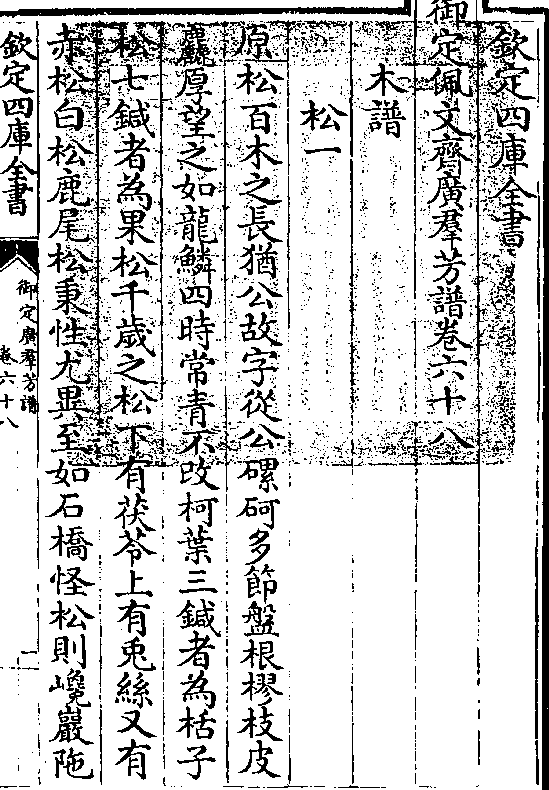 欽定四庫全書
御定佩文齋廣羣芳譜卷六十八
木譜
松一
原松百木之長猶公故字從公磥砢多節盤根樛枝皮
麤厚望之如龍鱗四時常青不改柯葉三鍼者為栝子
松七鍼者為果松千歲之松下有茯苓上有兎絲又有
赤松白松鹿尾松秉性尤異至如石橋怪松則巉巖陁
欽定四庫全書
御定廣羣芳譜
卷六十八
一